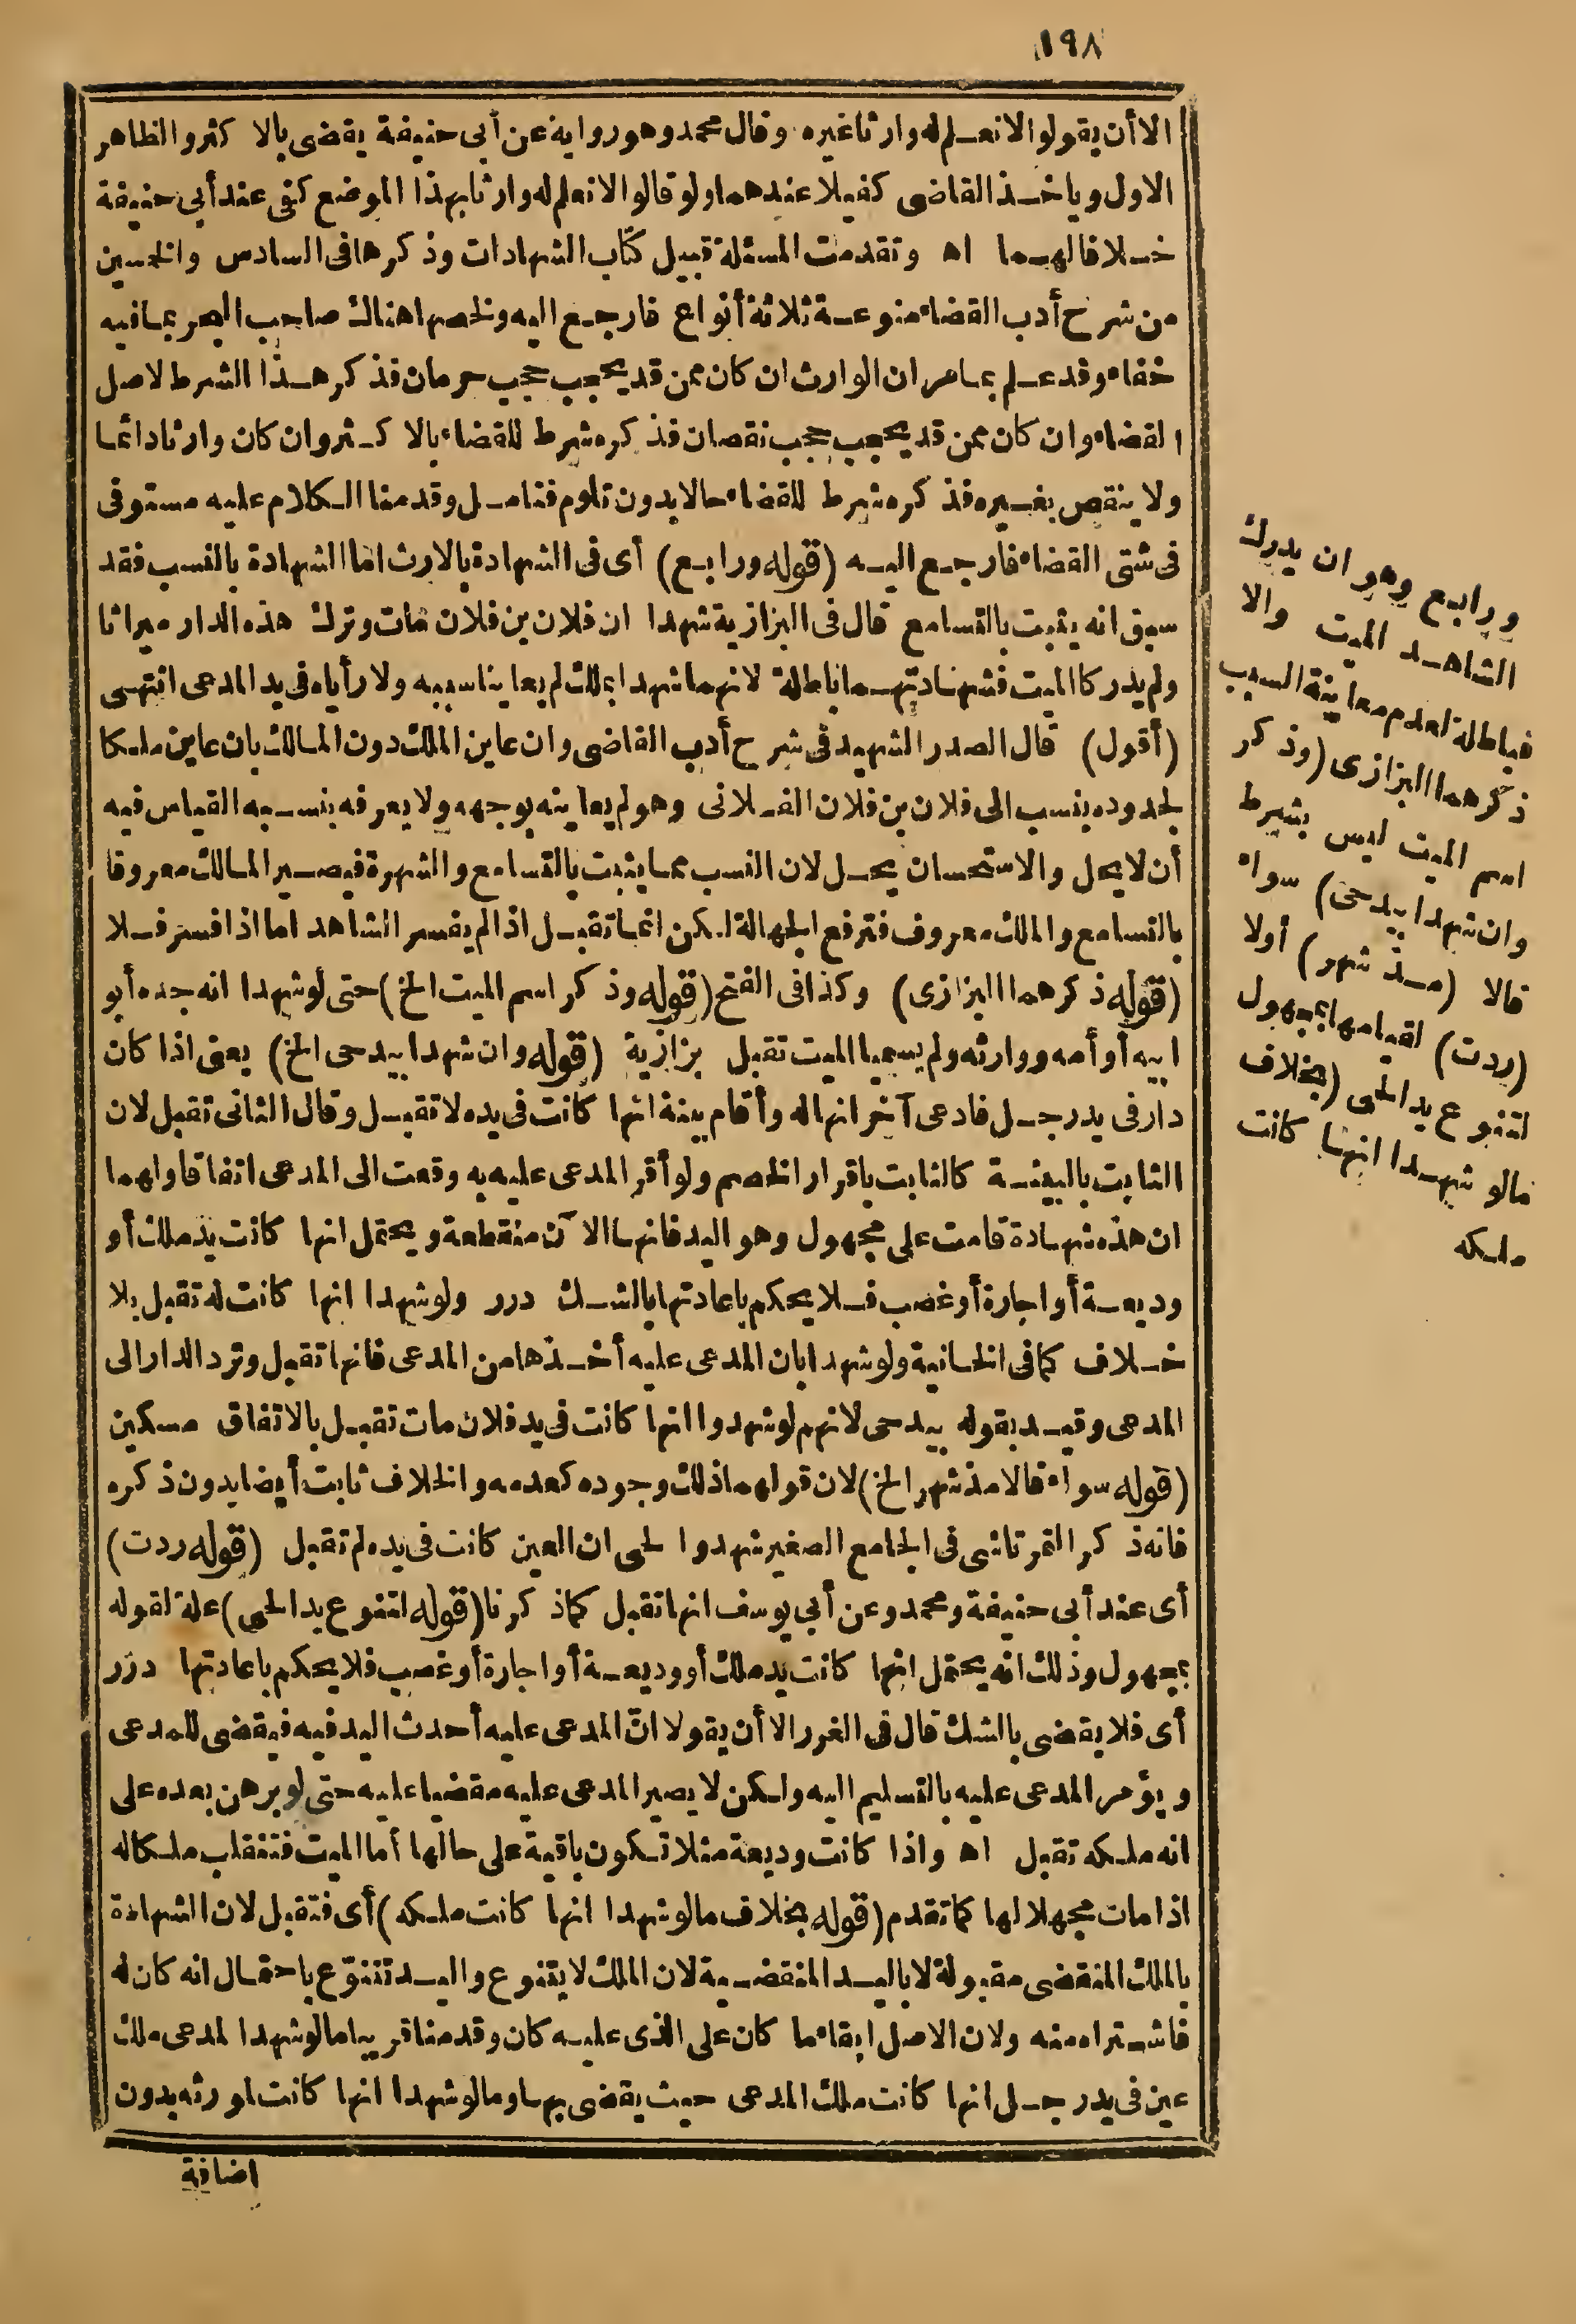 ١٩٨
الا أن يقولوا لا نعلم له وارثا غيره وقال محمد وهو رواية عن أبى حنيفة يقضى بالا كثر والظاهر
الاول وياخذ القاضى كفيلا عندهما ولو قالوا لا نعلم له وارثا بهذا الموضع كفى عند أبى حنيفة
خلافا لهما اه وتقدمت المسئلة قبيل كتاب الشهادات وذكرها فى السادس والخمسين
من شرح أدب القضاء منوعة ثلاثة أنواع فارجع اليه ولخصها هناك صاحب البحر بما فيه
خفاء وقد علم بما مر ان الوارث ان كان ممن قد يحجب حجب حرمان فذكر هذا الشرط لاصل
القضاء وان كان ممن قد يحجب حجب نقصان فذكره شرط للقضاء بالا كثر وان كان وارثا دائما
ولا ينقص بغيره فذكره شرط للقضاء حالا بدون تلوم فتامل وقدمنا الكلام عليه مستوفى
فى شتى القضاء فارجع اليه (قوله ورابع) أى فى الشهادة بالارث اما الشهادة بالنسب فقد
سبق انه يثبت بالتسامع قال فى البزازية شهدا ان فلان بن فلان مات وترك هذه الدار ميراثا
ولم يدركا الميت فشهادتهما باطلة لانهما شهدا بملك لم يعاينا سببه ولا رأياه فى يد المدعى انتهى
(أقول) قال الصدر الشهيد فى شرح أدب القاضى وان عاين الملك دون المالك بان عاين ملكا
بحدوده ينسب الى فلان بن فلان الفلانى وهو لم يعاينه بوجهه ولا يعرفه بنسبه القياس فيه
أن لا يحل والاستحسان يحل لان النسب مما يثبت بالتسامع والشهرة فيصير المالك معروفا
بالتسامع والملك معروف فترفع الجهالة لكن انما تقبل اذا لم يفسر الشاهد اما اذا فسر فلا
(قوله ذكرهما البزازى) وكذا فى الفتح (قوله وذكر اسم الميت الخ) حتى لو شهدا انه جده أبو
ابيه أو أمه ووارثه ولم يسميا الميت تقبل بزازية (قوله وان شهدا بيد حى الخ) يعنى اذا كان
دار فى يد رجل فادعى آخر انها له وأقام بينة انها كانت فى يده لا تقبل وقال الثانى تقبل لان
الثابت بالبينة كالثابت باقرار الخصم ولو أقر المدعى عليه به وقعت الى المدعى اتفاقا ولهما
ان هذه شهادة قامت على مجهول وهو اليد فانها الا آن منقطعة ويحتمل انها كانت يد ملك أو
وديعة أو اجارة أو غصب فلا يحكم باعادتها بالشك درر ولو شهدا انها كانت له تقبل بلا
خلاف كما فى الخانية ولو شهدا بان المدعى عليه أخذها من المدعى فانها تقبل وترد الدار الى
المدعى وقيد بقوله بيد حى لانهم لو شهدوا انها كانت فى يد فلان مات تقبل بالاتفاق مسكين
(قوله سواء قالا مذ شهر الخ) لان قولهما ذلك وجوده كعدمه والخلاف ثابت أيضا بدون ذكره
فانه ذكر التمرتاشى فى الجامع الصغير شهدوا لحى ان العين كانت فى يده لم تقبل (قوله ردت)
أى عند أبى حنيفة ومحمد وعن أبى يوسف انها تقبل كما ذكرنا (قوله لتنوع يد الحى) علة لقوله
بمجهول وذلك انه يحتمل انها كانت يد ملك أو وديعة أو اجارة أو غصب فلا يحكم باعادتها درر
أى فلا يقضى بالشك قال فى الغرر الا أن يقولا انّ المدعى عليه أحدث اليد فيه فيقضى للمدعى
ويؤمر المدعى عليه بالتسليم اليه ولكن لا يصير المدعى عليه مقضيا عليه حتى لو برهن بعده على
انه ملكه تقبل اه واذا كانت وديعة مثلا تكون باقية على حالها أما الميت فتنقلب ملكا له
اذا مات مجهلا لها كما تقدم (قوله بخلاف ما لو شهدا انها كانت ملكه) أى فتقبل لان الشهادة
بالملك المنقضى مقبولة لا باليد المنقضية لان الملك لا يتنوع واليد تتنوّع باحتمال انه كان له
فاشتراه منه ولان الاصل ابقاء ما كان على الذى عليه كان وقدمنا قريبا ما لو شهدا لمدعى ملك
عين فى يد رجل انها كانت ملك المدعى حيث يقضى بها وما لو شهدا انها كانت لمورثه بدون
اضافة
ورابع وهو ان يدرك
الشاهد الميت والا
فباطلة لعدم معاينة السبب
ذكرهما البزازى (وذكر
اسم الميت ليس بشرط
وان شهدا بيد حى) سواء
قالا (مذ شهر) أولا
(ردت) لقيامها بمجهول
لتنوع يد الحى (بخلاف
ما لو شهدا انها كانت
ملكه